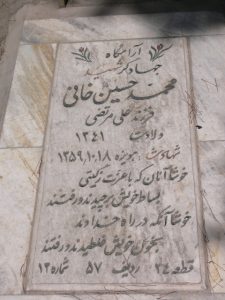 آرامگاه
جهادگر شهید
محمد حسین خانی
فرزند علی مرتضی
ولادت ۱۳۴۱
شهادت هویزه ۱۳۵۹,۱۰,۱۸
خوشا آنان که با عزت ز گیتی
بساط خویش برچیدند و رفتند
خوشا آنانکه در راه خداوند
بخون خویش غلطیدند و رفتند
قطعه ۲۴ ردیف ۵۷ شماره ۱۲